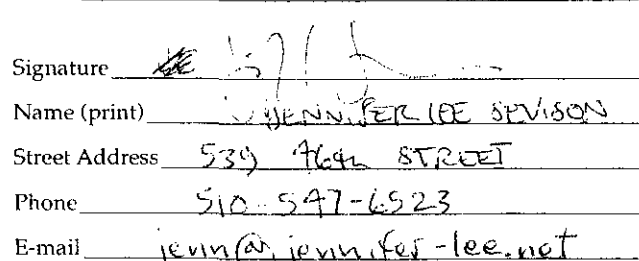 Signature
Name (print) JENNIFER LEE SEVISON
Street Address 539 46th STREET
Phone 510 547-6523
E-mail jenn@jennifer-lee.net